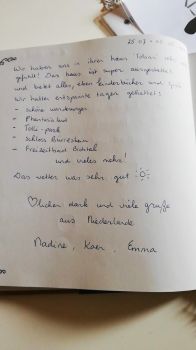 25.07 -
Wir haben uns in ihrer haus Tobian sehr
gefühlt! Das haus ist super ausgestattet
und bietet alles, even kinderbücher und
Wir hatten entspannte tagen gehabt:
- schöne wanderungen
- Phantasialand
- Tolli-park
- schloss Bürresheim
- Freizeitbad
und vieles mehr!
Das wetter war sehr gut
♡lichen dank und viele gruße
aus Niederlande
Nadine, Koen, Emma